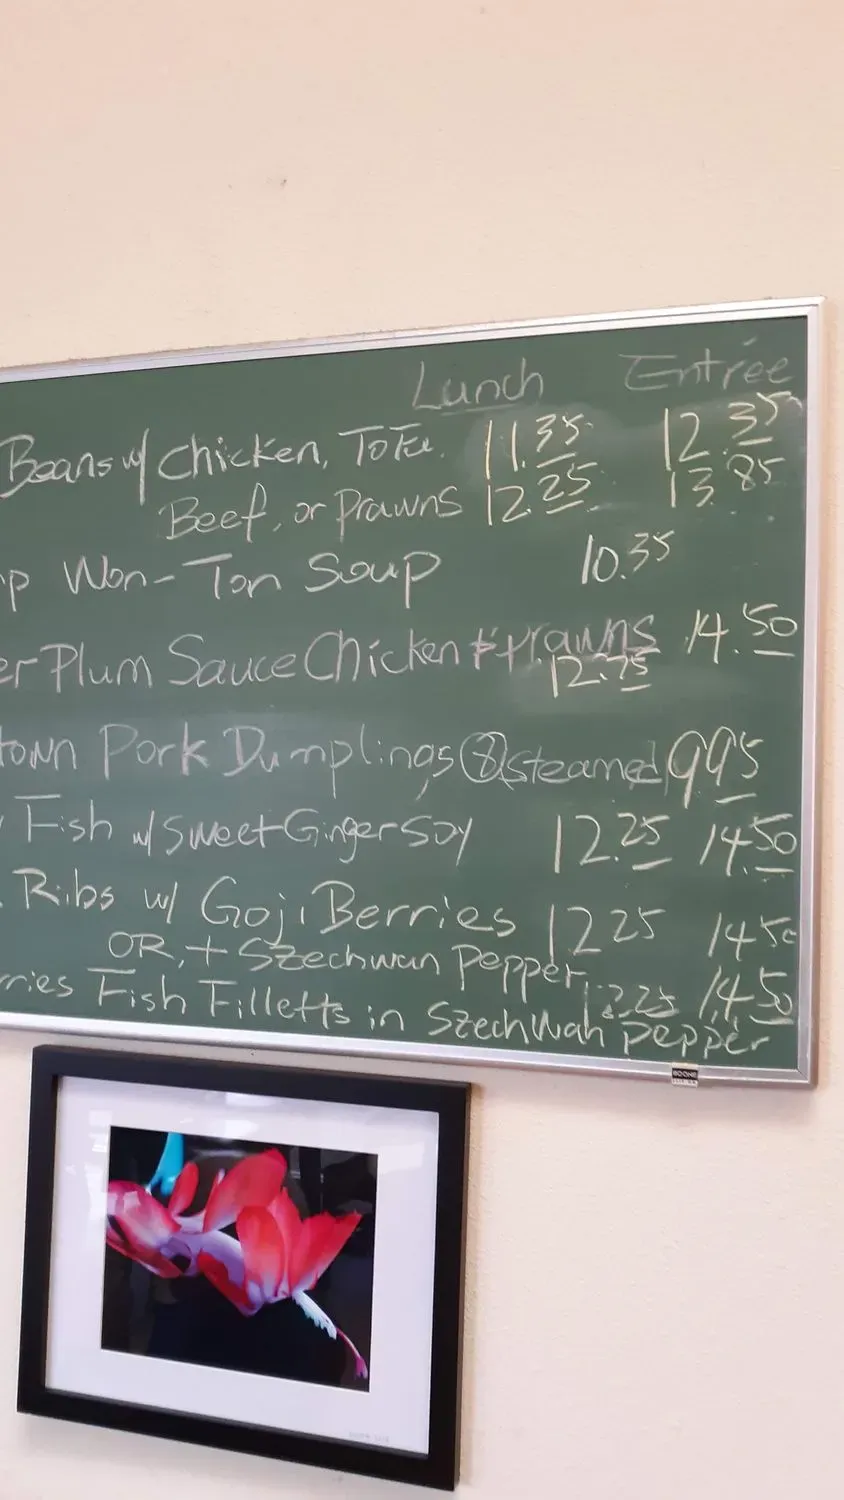 Lunch Entrée
Beans w/ Chicken, Tofu. 11.35 12.35
Beef, or Prawns 12.25 13.85
p Won-Ton Soup 10.35
er Plum Sauce Chicken + Prawns 14.50
12.75
town Pork Dumplings (8) steamed 9.95
Fish w/ Sweet Ginger Soy 12.25 14.50
Ribs w/ Goji Berries 12 25 14 50
OR, + Szechwan Pepper
12.25 14.50
rries Fish Filletts in Szechwan Pepper
BOONE